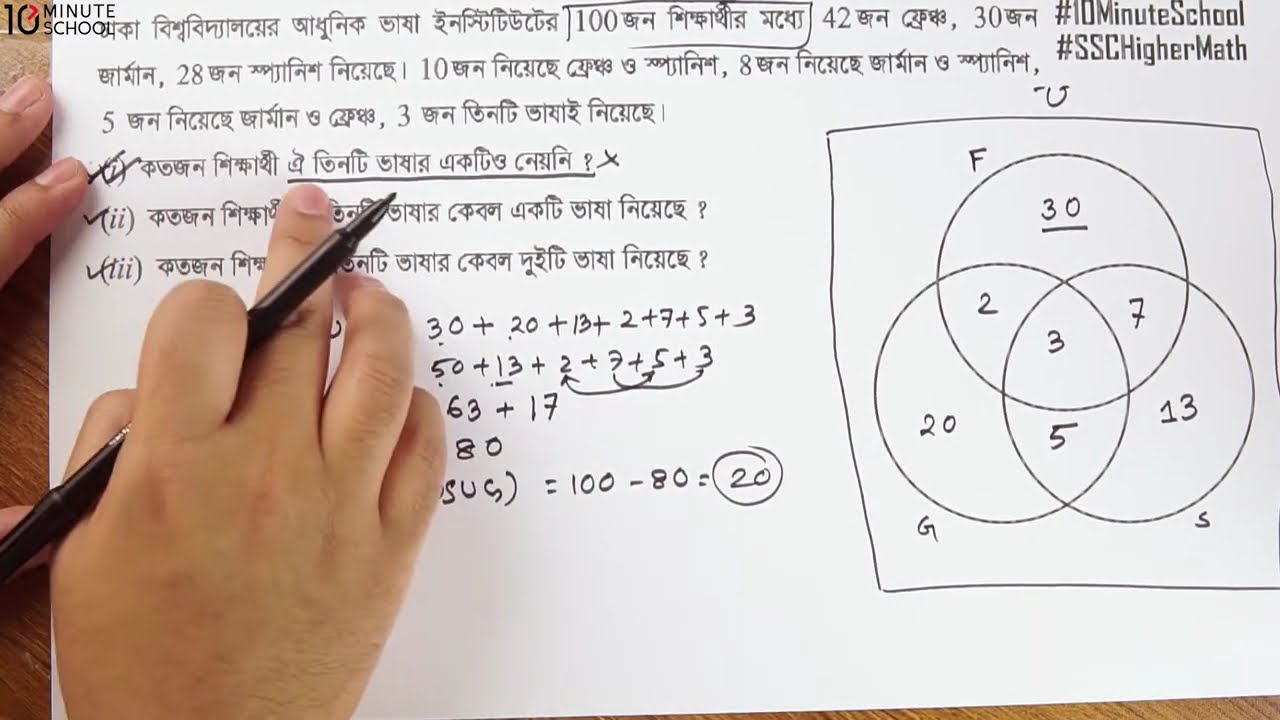 10 MINUTE SCHOOL
#10MinuteSchool
#SSCHigherMath
বিশ্ববিদ্যালয়ের আধুনিক ভাষা ইনস্টিটিউটের 100 জন শিক্ষার্থীর মধ্যে 42 জন ফ্রেঞ্চ, 30 জন
জার্মান, 28 জন স্প্যানিশ নিয়েছে। 10 জন নিয়েছে ফ্রেঞ্চ ও স্প্যানিশ, 8 জন নিয়েছে জার্মান ও স্প্যানিশ,
5 জন নিয়েছে জার্মান ও ফ্রেঞ্চ, 3 জন তিনটি ভাষাই নিয়েছে।
(i) কতজন শিক্ষার্থী ঐ তিনটি ভাষার একটিও নেয়নি ?
(ii) কতজন তিনটি ভাষার কেবল একটি ভাষা নিয়েছে ?
(iii) কতজন ভাষার কেবল দুইটি ভাষা নিয়েছে ?
30 + 20 + 13 + 2 + 7 + 5 + 3
50 + 13 + 2 + 7 + 5 + 3
63 + 17
80
SUG) = 100 - 80 = 20
U
F
30
2
7
3
20
5
13
G
S